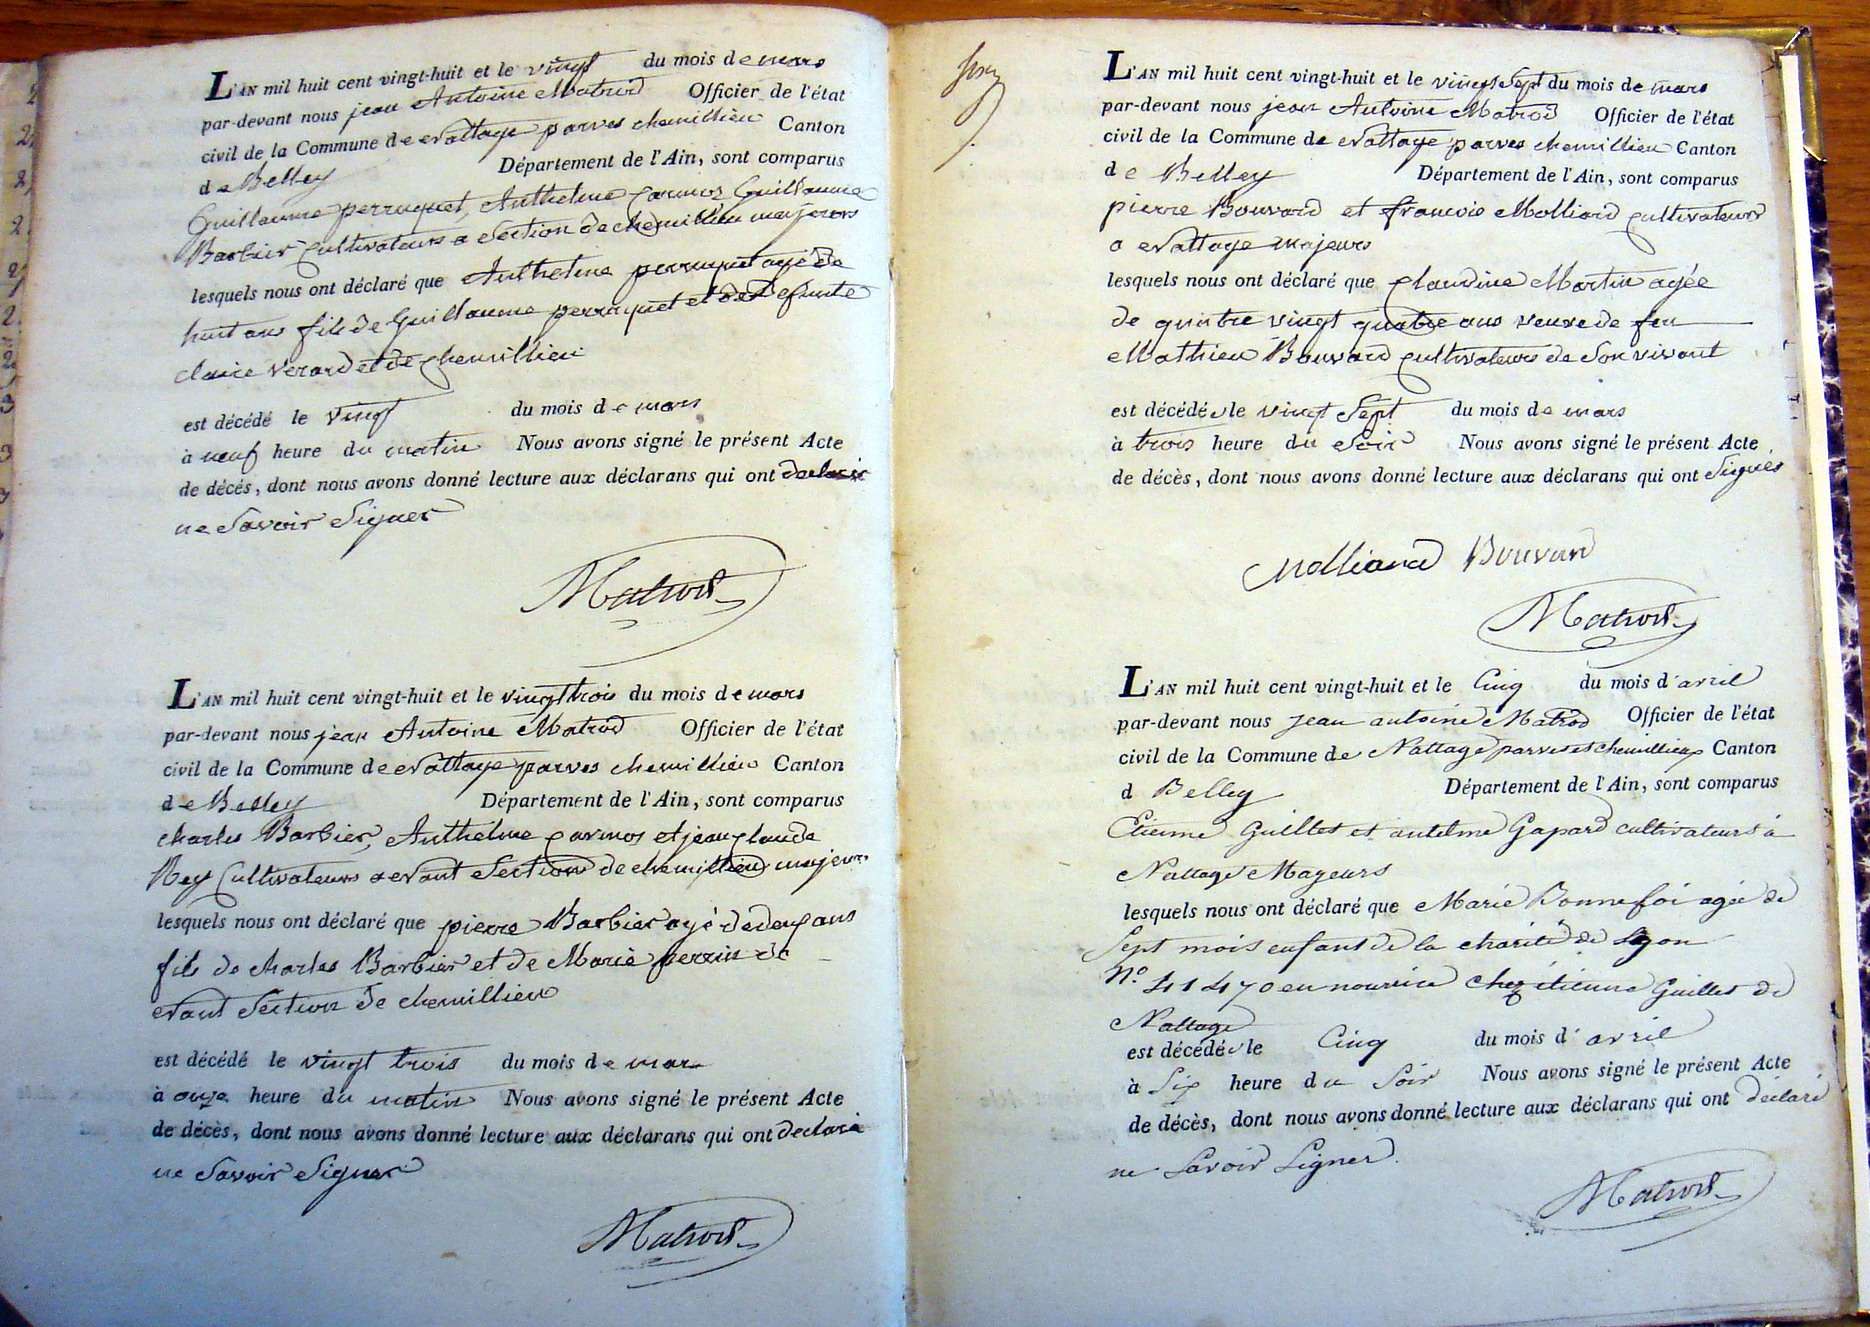 L'AN mil huit cent vingt-huit et le vingt du mois de mars
par-devant nous jean Antoine Matrod Officier de l'état
civil de la Commune de Nattage parves chemillieu Canton
de Belley Département de l'Ain, sont comparus
Guillaume perruquet, Anthelme Carmos Guillaume
Barbier Cultivateurs a Section de chemillieu majeurs
lesquels nous ont déclaré que Anthelme perruquet agé de
huit ans fils de Guillaume perruquet et de defunte
claire verard et de chemillieu
est décédé le vingt du mois de mars
à neuf heure du matin Nous avons signé le présent Acte
de décés, dont nous avons donné lecture aux déclarans qui ont
ne Savoir Signer
Matrod
L'AN mil huit cent vingt-huit et le vingt trois du mois de mars
par-devant nous jean Antoine Matrod Officier de l'état
civil de la Commune de Nattage parves chemillieu Canton
de Belley Département de l'Ain, sont comparus
charles Barbier, Anthelme Carmos et jean claude
Rey Cultivateurs a Section de chemillieu majeurs
lesquels nous ont déclaré que pierre Barbier agé de deux ans
fils de charles Barbier et de Marie perrin de
Section de chemillieu
est décédé le vingt trois du mois de mars
à onze heure du matin Nous avons signé le présent Acte
de décès, dont nous avons donné lecture aux déclarans qui ont declaré
ne Savoir Signer
Matrod
L'AN mil huit cent vingt-huit et le vingt Sept du mois de mars
par-devant nous jean Antoine Matrod Officier de l'état
civil de la Commune de Nattage parves chemillieu Canton
de Belley Département de l'Ain, sont comparus
pierre Bouvard et francois Molliard cultivateurs
a Nattage majeurs
lesquels nous ont déclaré que Claudine Martin agée
de quatre vingt quatre ans veuve de feu
Mathieu Bouvard cultivateurs de Son vivant
est décédée le vingt Sept du mois de mars
à trois heure du Soir Nous avons signé le présent Acte
de décès, dont nous avons donné lecture aux déclarans qui ont Signés
Molliard Bouvard
Matrod
L'AN mil huit cent vingt-huit et le Cinq du mois d'avril
par-devant nous jean antoine Matrod Officier de l'état
civil de la Commune de Nattage parves et chemillieu Canton
d Belley Département de l'Ain, sont comparus
Etienne Guillet et antelme Gapard cultivateurs à
Nattage Mageurs
lesquels nous ont déclaré que Marie Bonnefoi agée de
Sept mois enfant de la charité de Lyon
N.º 41470 en nourrice chez étienne Guillet de
Nattage
est décédée le Cinq du mois d'avril
à Six heure du Soir Nous avons signé le présent Acte
de décès, dont nous avons donné lecture aux déclarans qui ont déclaré
ne Savoir Signer.
Matrod